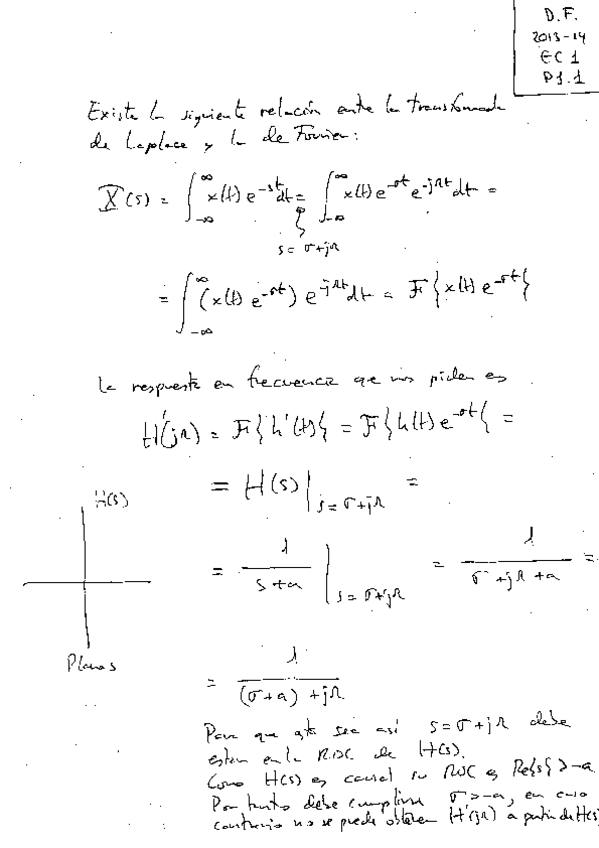 D.F.
2013-14
EC 1
P1.1
Existe la siguiente relación entre la transformada
de Laplace y la de Fourier:
X(s) = ∫_{-∞}^{∞} x(t) e^{-st} dt = ∫_{-∞}^{∞} x(t) e^{-σt} e^{-jΩt} dt =
s = σ+jΩ
= ∫_{-∞}^{∞} (x(t) e^{-σt}) e^{-jΩt} dt = F{x(t) e^{-σt}}
La respuesta en frecuencia que nos piden es
H'(jΩ) = F{h'(t)} = F{h(t) e^{-σt}} =
= H(s)|_{s=σ+jΩ} =
H(s)
= 1/(s+a) |_{s=σ+jΩ} = 1/(σ+jΩ+a) =
Plano s
= 1/((σ+a)+jΩ)
Para que esto sea así s=σ+jΩ debe
estar en la ROC de H(s).
Como H(s) es causal su ROC es Re{s}>-a.
Por tanto debe cumplirse σ>-a, en caso
contrario no se puede obtener H'(jΩ) a partir de H(s)